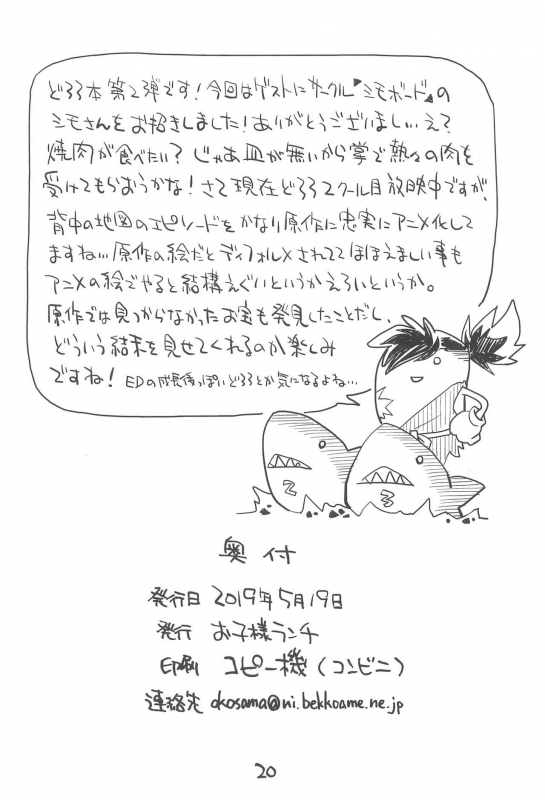 どろろ本第2弾です！今回はゲストにサークル『シモボード』の
シモさんをお招きしました！ありがとうございまし…え？
焼肉が食べたい？じゃあ皿が無いから掌で熱々の肉を
受けてもらおうかな！さて現在どろろ2クール目放映中ですが、
背中の地図のエピソードをかなり原作に忠実にアニメ化して
ますね…原作の絵だとディフォルメされててほほえましい事も
アニメの絵でやると結構えぐいというかえろいというか。
原作では見つからなかったお宝も発見したことだし、
どういう結末を見せてくれるのか楽しみ
ですね！EDの成長後っぽいどろろとか気になるよね…
2
3
奥付
発行日 2019年5月19日
発行 お子様ランチ
印刷 コピー機(コンビニ)
連絡先 okosama@ni.bekkoame.ne.jp
20